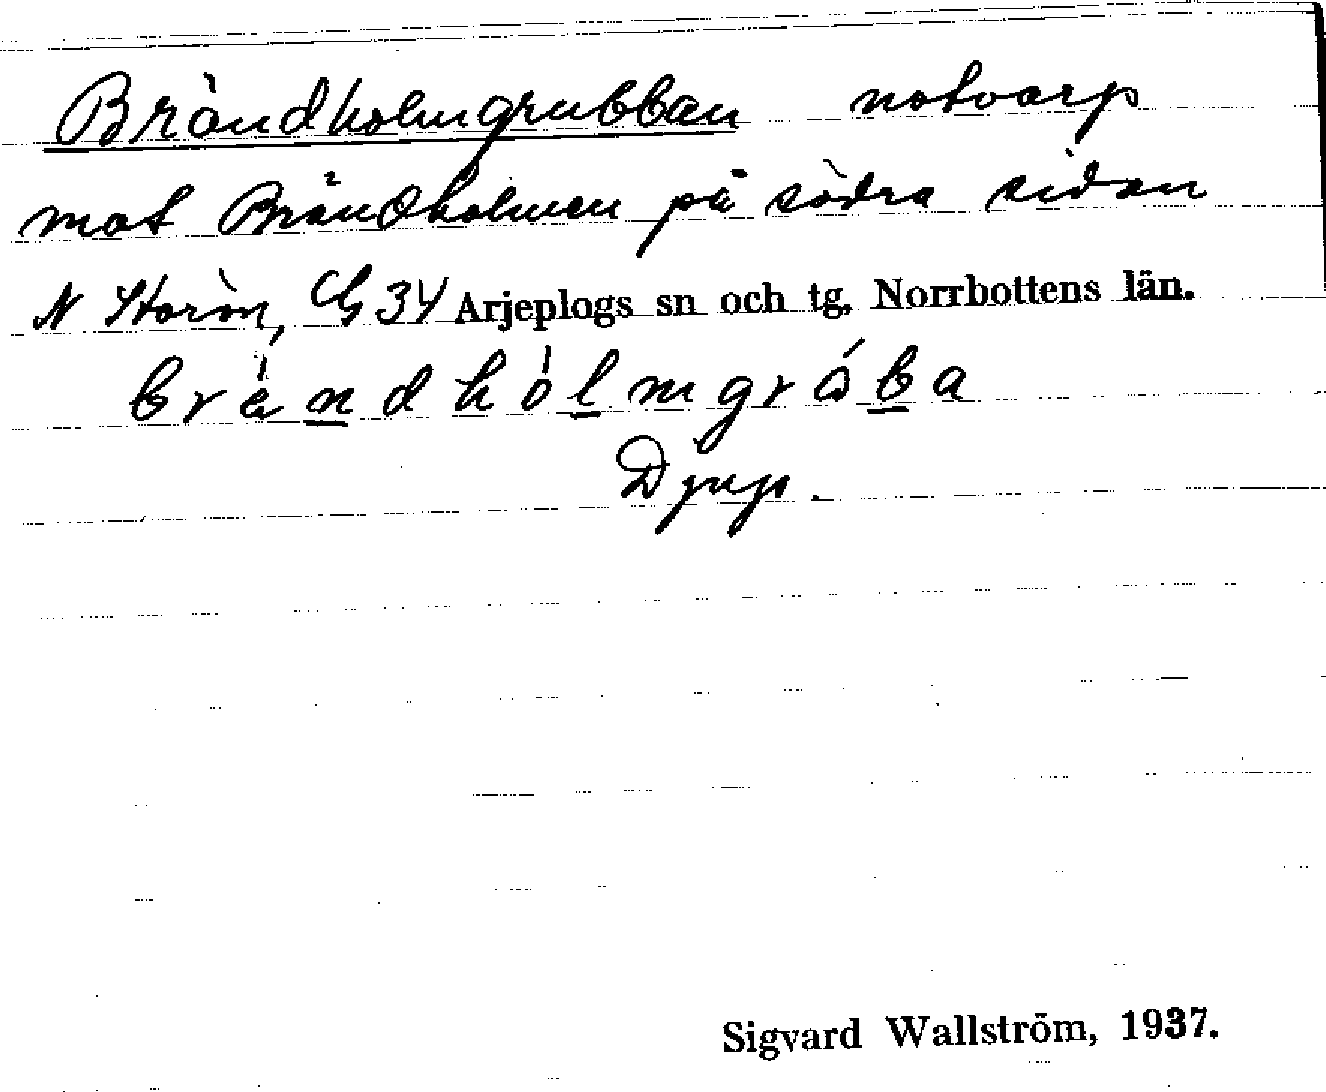 Brändholmgrubban notvarp
mot Brändholmen på södra sidan
N Storön, G34 Arjeplogs sn och tg, Norrbottens län.
brändhólmgråba
Djup.
Sigvard Wallström, 1937.